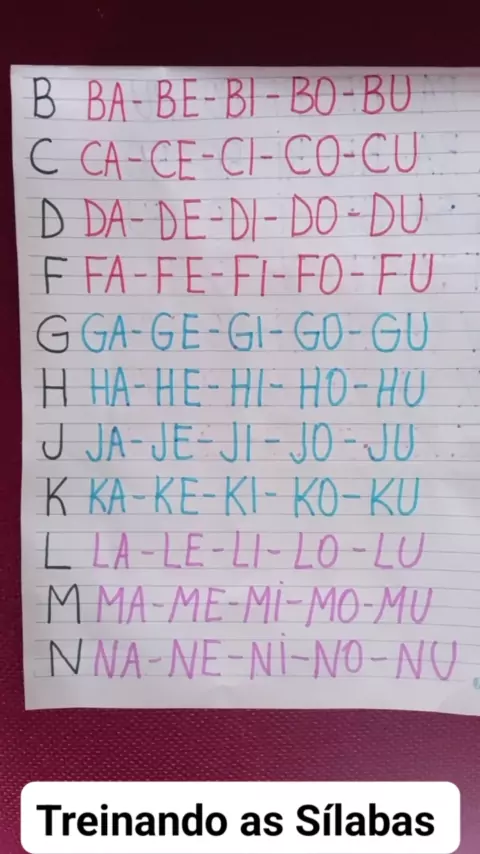 B BA-BE-BI-BO-BU
C CA-CE-CI-CO-CU
D DA-DE-DI-DO-DU
F FA-FE-FI-FO-FU
G GA-GE-GI-GO-GU
H HA-HE-HI-HO-HU
J JA-JE-JI-JO-JU
K KA-KE-KI-KO-KU
L LA-LE-LI-LO-LU
M MA-ME-Mi-MO-MU
N NA-NE-Ni-NO-NU
Treinando as Sílabas